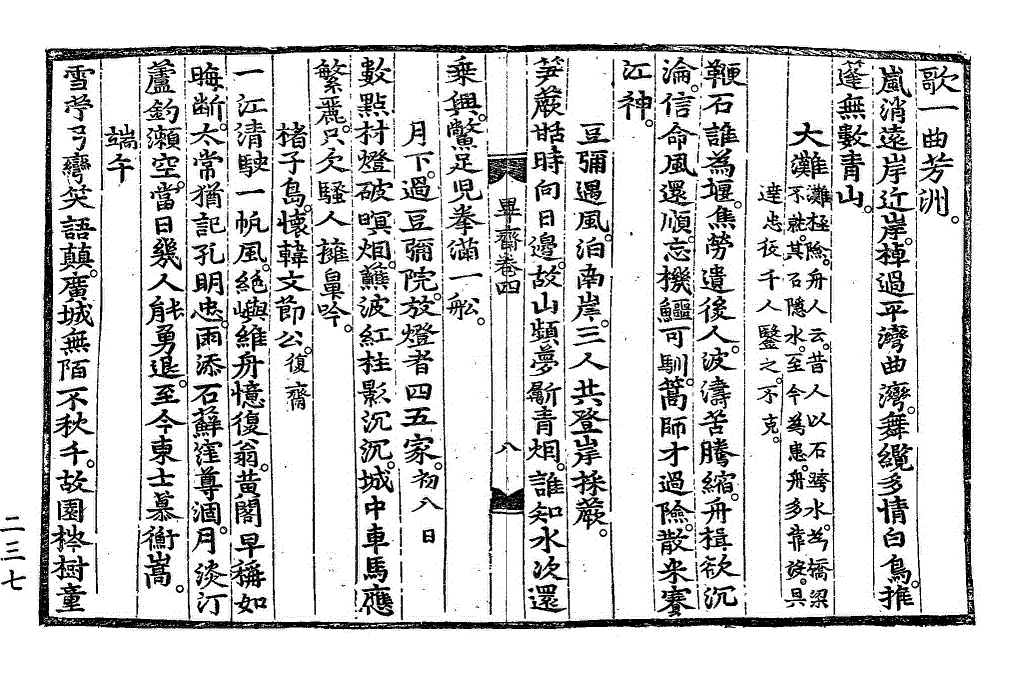 歌一曲芳洲。
嵐消遠岸近岸。棹過平灣曲灣。舞纜多情白鳥。推
篷無數青山。
大灘灘極險。舟人云。昔人以石跨水。爲橋梁
不就。其石隱水。至今爲患。舟多靠敗。具
達忠夜千人鑿之。不克。
鞭石誰為堰。焦勞遺後人。波濤苦騰縮。舟楫欲沉
淪。信命風還順。忘機鱷可馴。篙師才過險。散米賽
江神。
豆彌遇風。泊南岸。三人共登岸採蕨。
笋蕨甜時向日邊。故山頻夢斸青烟。誰知水次還
乘興。鱉足兒拳滿一船。
月下過豆彌院。放燈者四五家。初八日
數點村燈破暝烟。蘸波紅柱影沉沉。城中車馬應
繁麗。只欠騷人擁鼻吟。
楮子島。懷韓文節公。復齋
一江清駛一帆風。絕嶼維舟憶復翁。黃閣早稱如
晦斷。太常猶記孔明忠。雨添石蘚窪尊涸。月淡汀
蘆釣瀨空。當日幾人能勇退。至今東士慕衡嵩。
端午
雪苧弓彎笑語顛。廣城無陌不秋千。故園桳樹童
畢齋卷四
八
二三七